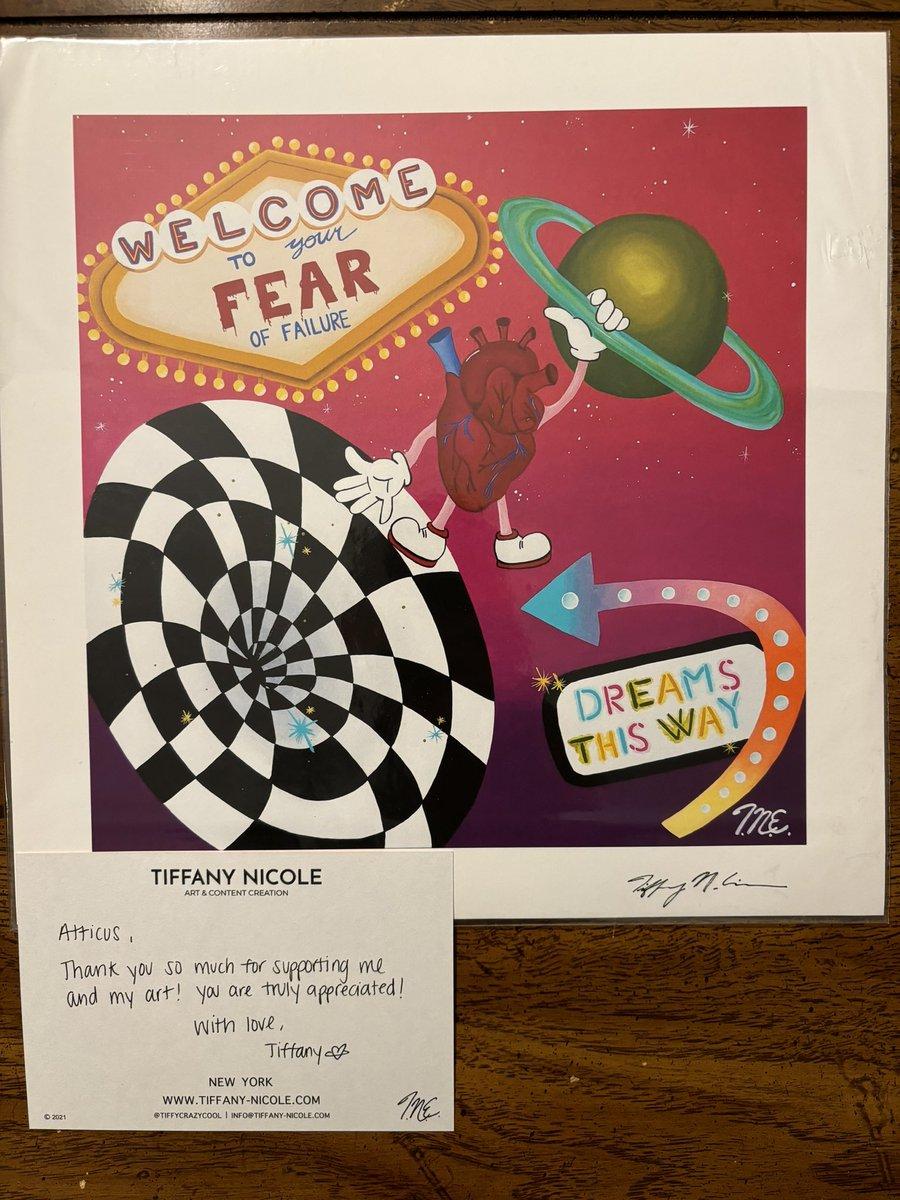 WELCOME
TO your
FEAR
OF FAILURE
DREAMS
THIS WAY
T.N.E.
TIFFANY NICOLE
ART & CONTENT CREATION
Atticus,
Thank you so much for supporting me
and my art! you are truly appreciated!
with love,
Tiffany
NEW YORK
WWW.TIFFANY-NICOLE.COM
@TIFFYCRAZYCOOL | INFO@TIFFANY-NICOLE.COM
© 2021
T.N.E.